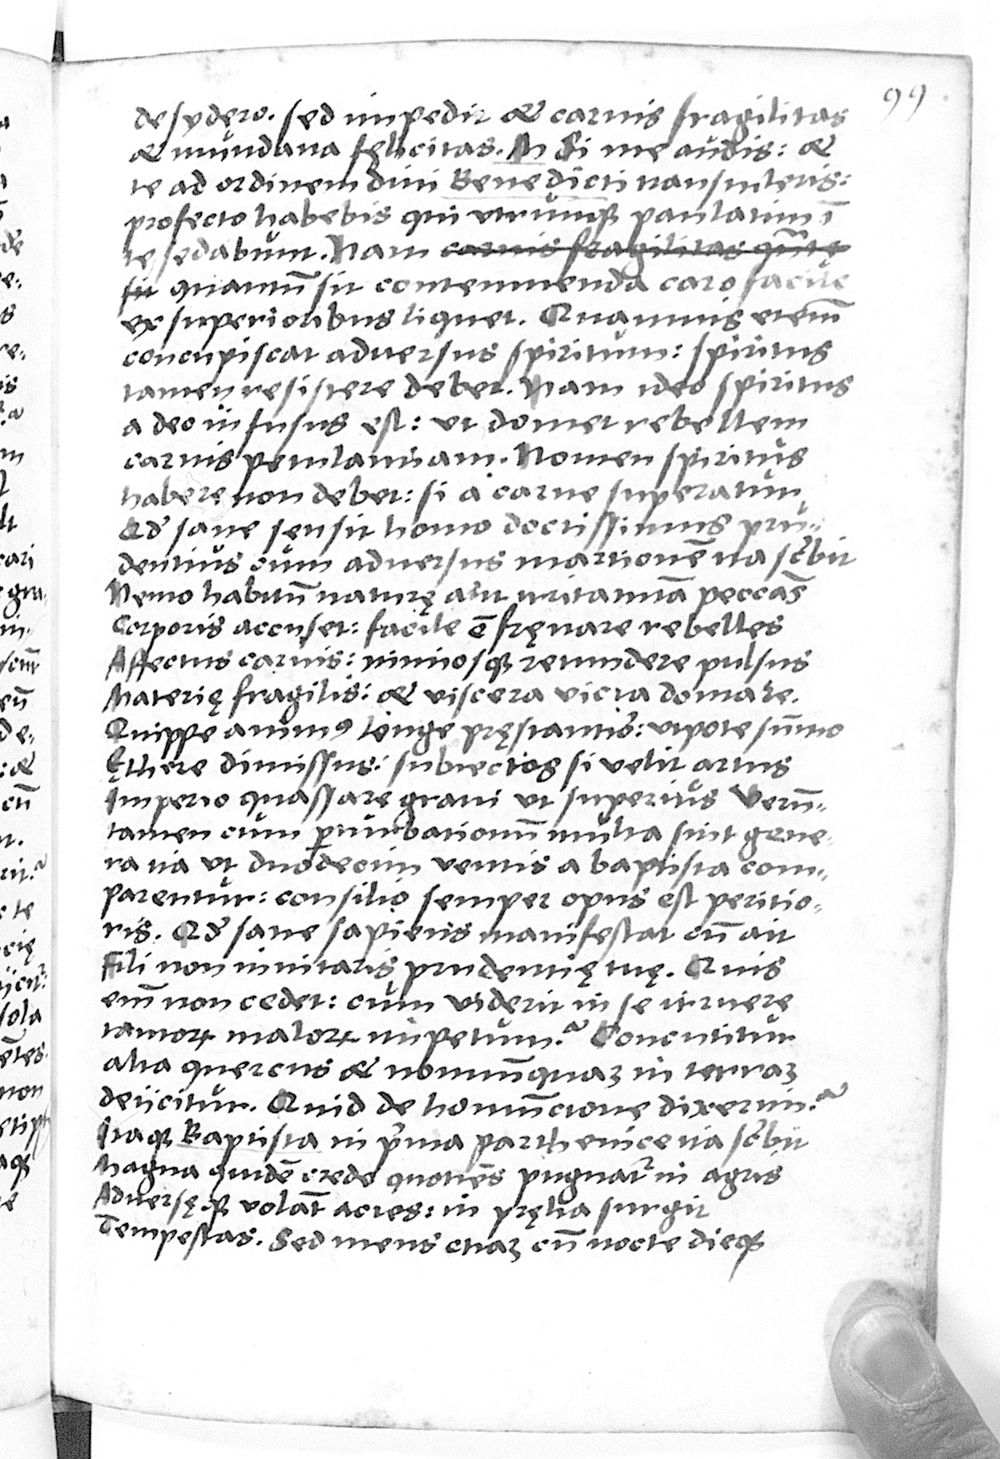 99
desydero. sed impedit & carnis fragilitas
& mundana felicitas. At Si me audis: &
te ad ordinem diui Benedicti transtuleris:
profecto habebis qui utrunqꝫ paulatim ī
te sedabunt. Nam carnis fragilitas
sit quantū sit contemnenda caro facile
ex superioribus liquet. Quamuis etem̄
concupiscat aduersus spiritum: spiritus
tamen resistere debet. Nam ideo spiritus
a deo infusus est: ut domet rebellem
carnis petulantiam. Nomen spiritus
habere non debet: si a carne superatur
Qd̛ sane sensit homo doctissimus pru-
dentius cum aduersus martionē ita sc̄bit
Nemo habitū naturę aut irritamīa peccās
Corporis accuset: facile ē fręnare rebelles
Affectus carnis: nimiosqꝫ retundere pulsus
Materię fragilis: & viscera victa domare.
Quippe animꝯ longe pręstantis̄: utpote sūmo
Ęthere dimissus: subiectos si velit artus
Imperio quassare graui ut superius Verū-
tamen cum ꝑturbationū multa sint gene-
ra ita ut duodecim ventis a baptista com-
parentur: consilio semper opus est peritio-
ris. Qd̛ sane sapiens manifestat cū ait
Fili non innitaris prudentię tuę. Quis
em̄ non cedet: cum viderit in se irruere
tantoꝝ maloꝝ impetum? Concutitur
alta quercus & nonnūquaꝫ in terraꝫ
deiicitur. Quid de homūcione dixerim?
Itaqꝫ Baptista in p̄ma parthenice ita sc̄bit
Magna quidē crede quotiēs pugnat᷑ in agris
Aduersęqꝫ volāt acies: in pręlia surgit
Tempestas. Sed mens etiaꝫ cū nocte dieqꝫ